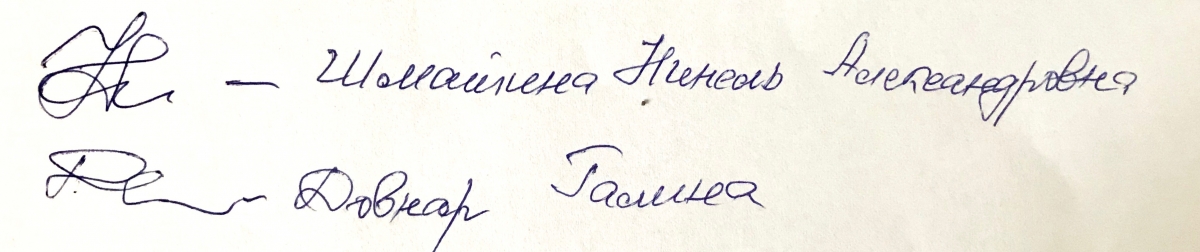 – Шмайкина Нинель Александровна
– Довнар Галина